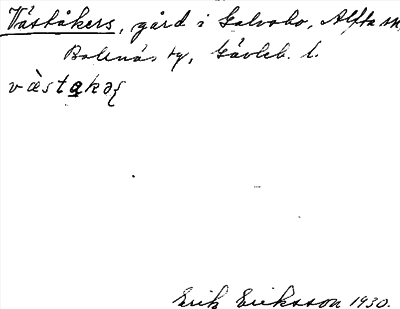 Väståkers, gård i Galvobo, Alfta sn,
Bollnäs tg, Gävleb. l.
Erik Eriksson 1930.